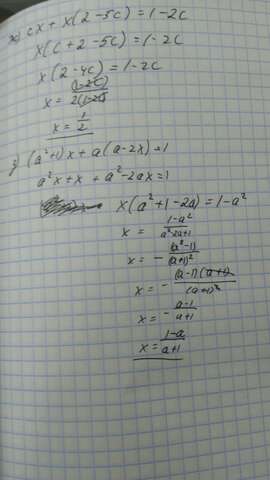 ж) cx + x(2-5c) = 1-2c
x(c+2-5c) = 1-2c
x(2-4c) = 1-2c
x = (1-2c)/2(1-2c)
x = 1/2
з) (a²+1)x + a(a-2x) = 1
a²x + x + a² - 2ax = 1
x(a²+1-2a) = 1-a²
x = 1-a²/a²2a+1
x = - (a²-1)/(a+1)²
x = - (a-1)(a+1)/(a+1)²
x = - a-1/a+1
x = 1-a/a+1